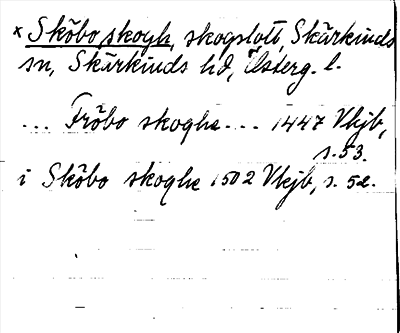 * Sköbo skogh, skogslott, Skärkinds
sn, Skärkinds hd, Österg. l.
... Fröbo skoghe ... 1447 Vkjb,
s. 53.
i Sköbo skoghe 1502 Vkjb, s. 52.